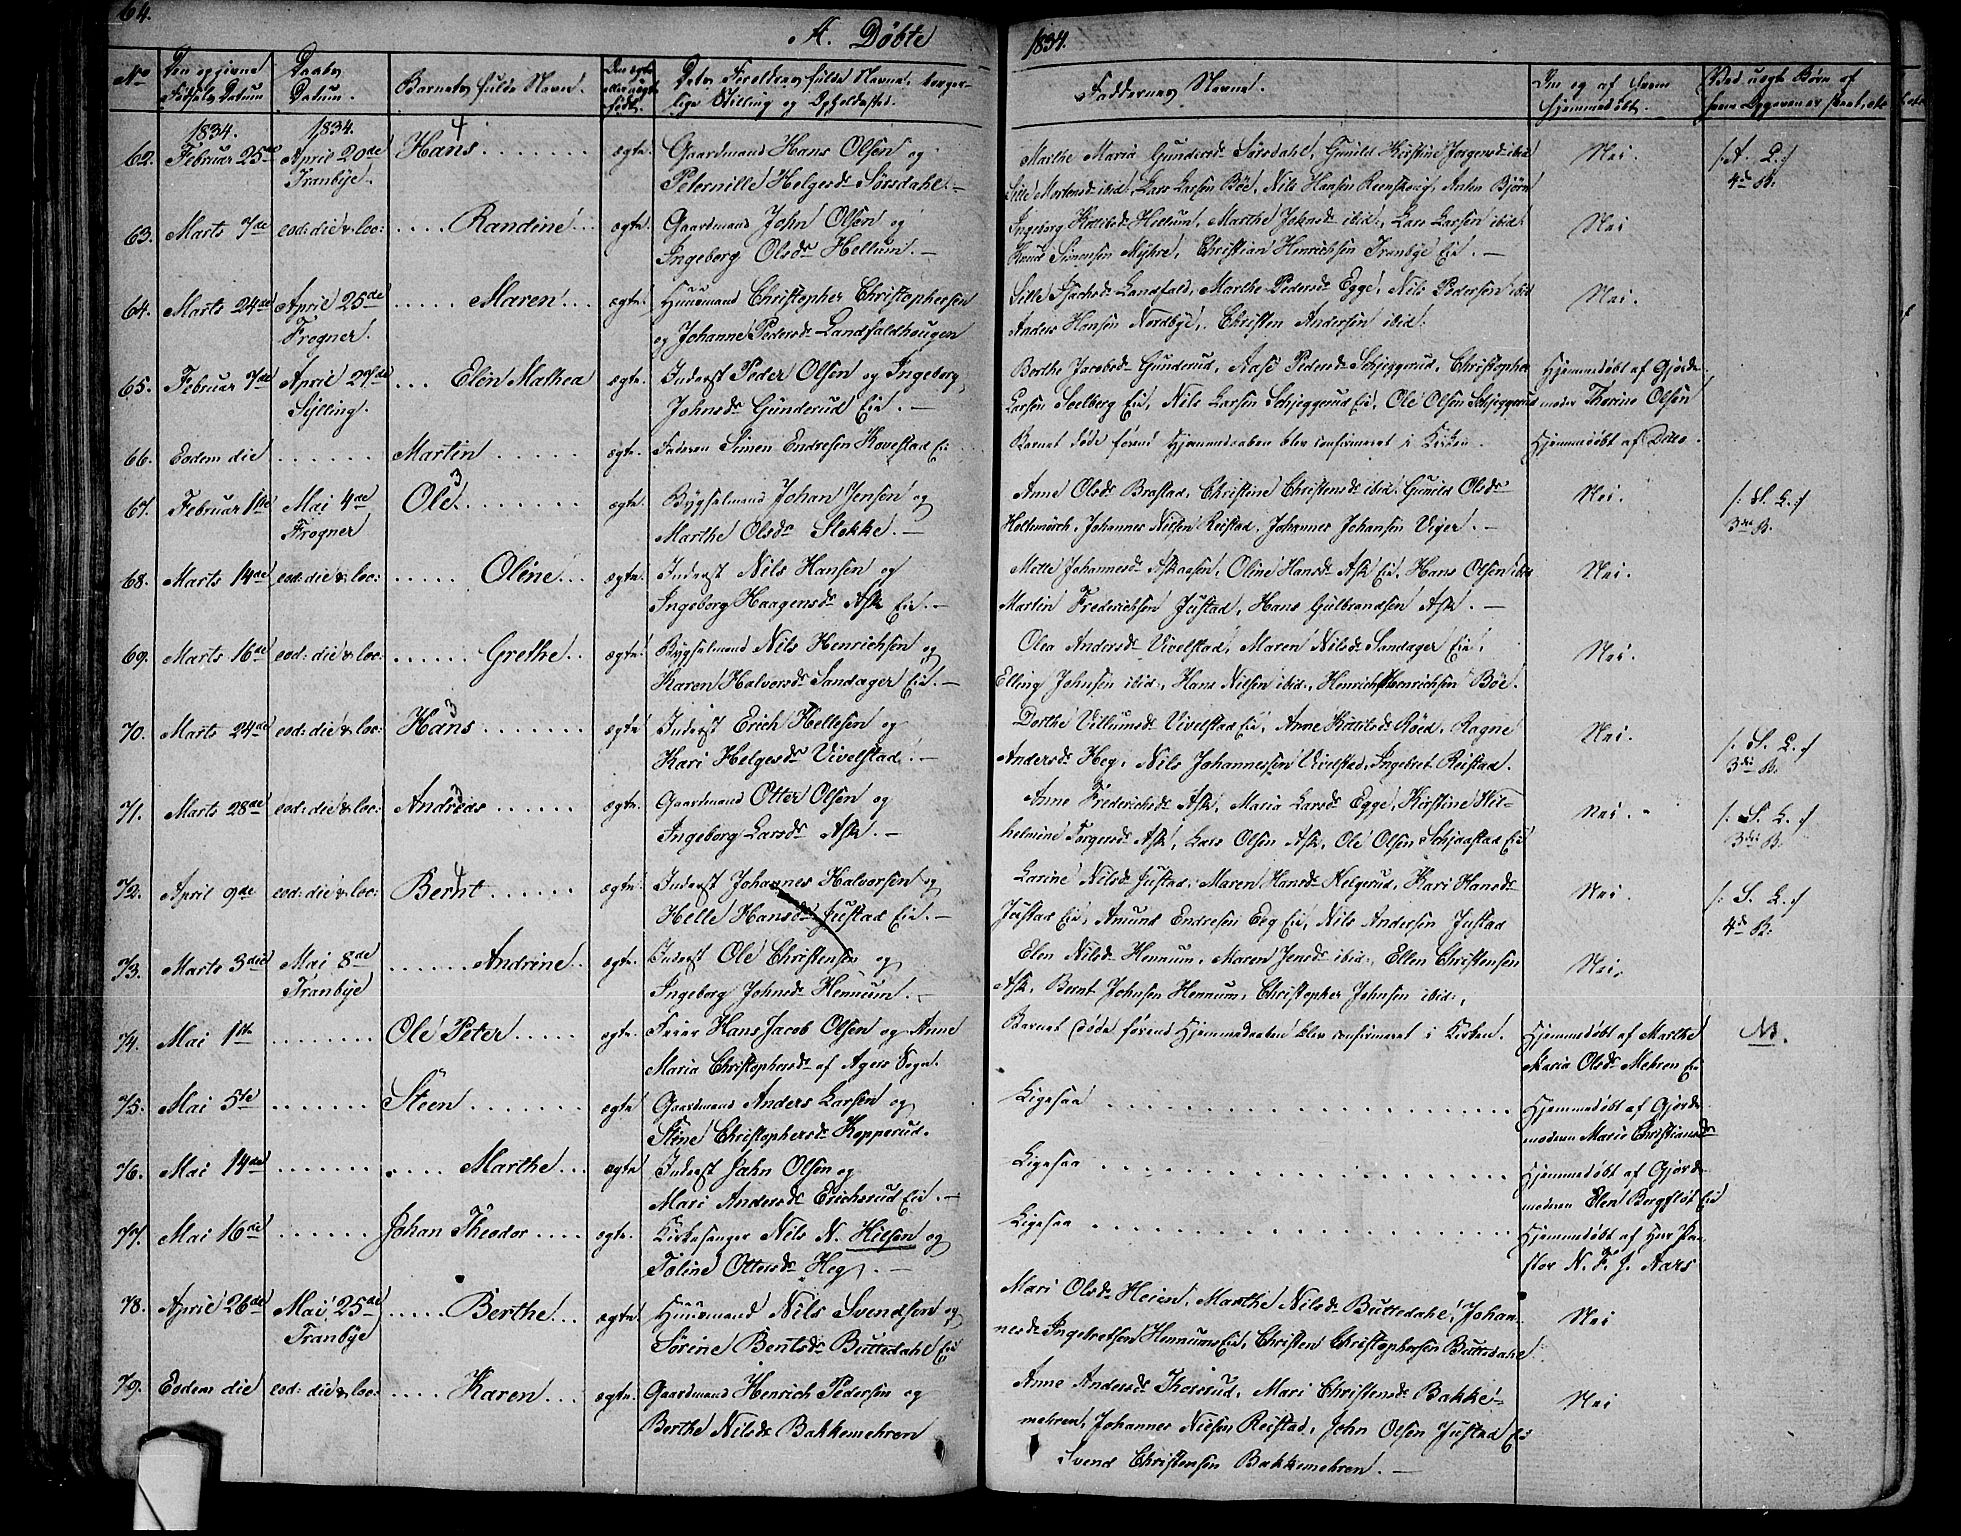 64.
A. Døbte
1834.
No
Den opgivne Fødsels Datum
Daabs Datum.
Barnets fulde Navn.
Om ægte eller uægte født.
Dets Forældres fulde Navne, borgerlige Stilling og Opholdssted.
Faddernes Navne.
Om og af hvem hjemmedøbt.
1834.
1834.
62. Februar 25de April 20de Hans ægte. Gaardmand Hans Olsen og
Tranbye. Peternille Helgesdr Sørsdahl.
Marthe Maria Gundersdr Sørsdahl, Gunild Kirstine Jørgensdr ibid
Lars Larsen Bøe, Nils Hansen
Nei.
4de B.
63. Marts 7de eod: die & loc: Randine ægte. Gaardmand John Olsen og
Ingeborg Olsdr Hellum.
Marthe Johnsdr ibid, Lars Larsen ibid
Knud Simensen Myhre, Christian Henrichsen Tranbye Eie.
Nei
64. Marts 24de April 25de Maren ægte. Huusmand Christopher Christophersen
Frogner. og Johanne Pedersdr Landfaldhougen
Landfald, Marthe Pedersdr Egge, Nils Pedersen ibid
Anders Hansen Nordbye, Christen Andersen ibid:
Nei.
65. Februar 7de April 27de Elen Mathea ægte. Inderst Peder Olsen og Ingeborg
Sylling. Johnsdr Gunderud Eie.
Berthe Jacobsdr Gunderud, Aase Pedersdr Schjeggerud, Christopher
Larsen Solberg Eie, Nils Larsen Schjeggerud Eie, Ole Olsen Schjeggerud
Hjemmedøbt af Gjorde-
moder Thorine Olsen
66. Eodem die Martin ægte. Faderen Simen Endresen Kovestad Eie
Barnet døde førend Hjemmedaaben blev confirmeret i Kirken.
Hjemmedøbt af Ditto.
67. Februar 1ste Mai 4de Ole ægte. Bygselmand Johan Jensen og
Frogner Marthe Olsdr Stokke.
Anne Olsdr Brastad, Christine Christensdr ibid: Gunild Olsdr
Holtmarch, Johannes Nilsen Reistad, Johannes Johansen Viger.
Nei.
3die B.
68. Marts 14de eod: die & loc: Oline ægte. Inderst Nils Hansen og
Ingeborg Haagensdr Ask Eie.
Mette Johannesdr Askaasen, Oline Hansdr Ask Eie, Hans Olsen ibid
Martin Frederichsen Justad, Hans Gulbrandsen Ask.
Nei.
69. Marts 16de eod: die & loc: Grethe ægte. Bygselmand Nils Henrichsen og
Karen Halvorsdr Sandager Eie.
Olea Andersdr Vivelstad, Maren Nilsdr Sandager Eie,
Elling Johnsen ibid:, Hans Nielsen ibid:, Henrich Henrichsen Bøe.
Nei.
70. Marts 24de eod: die & loc: Hans ægte Inderst Erich Hellesen og
Kari Helgesdr Vivelstad.
Dorthe Villumsdr Vivelstad Eie, Anne Røed, Ragne
Andersdr Heg, Nils Johannessen Vivelstad, Ingebret Reistad.
Nei.
/: S. L. :/
3die B.
71. Marts 28de eod: die & loc: Andreas ægte. Gaardmand Otter Olsen og
Ingeborg Larsdr Ask.
Anne Frederichsdr Ask, Maria Larsdr Egge, Kirstine Wil-
helmine Torgersdr Ask, Lars Olsen Ask, Ole Olsen Schjaastad Eie
Nei.
/: S. L. :/
3die B.
72. April 9de eod: die & loc: Bernt ægte. Inderst Johannes Halvorsen og
Helle Hansdr Justad Eie.
Larine Nilsdr Justad, Maren Hansdr Helgerud, Kari Hansdr
Justad Eie, Amund Endresen Eeg Eie, Nils Andersen Justad
Nei.
/: S. L. :/
4de B.
73. Marts 3die Mai 8de Andrine ægte. Inderst Ole Christensen og
Tranbye Ingeborg Johnsdr Hennum.
Elen Nilsdr Hennum, Maren Jensdr ibid:, Ellen Christensen
Ask, Bernt Johnsen Hennum, Christopher Johnsen ibid:,
Nei.
74. Mai 1ste Ole Peter ægte. Hans Jacob Olsen og Anne
Maria Christophersdr af Agers Sogn.
Barnet døde førend Hjemmedaaben blev confirmeret i Kirken.
Hjemmedøbt af Marthe
Maria Olsdr Mehren Eie
75. Mai 5te Steen ægte Gaardmand Anders Larsen og
Stine Christophersdr Kopperud.
Ligesaa
Hjemmedøbt af Gjorde-
moderen Marie Christiansdr
76. Mai 14de Marthe ægte Inderst John Olsen og
Mari Andersdr Erichsrud Eie.
Ligesaa
Hjemmedøbt af Gjorde-
moderen Elen Bergfløt Eie
77. Mai 16de Johan Theodor ægte. Kirkesanger Nils N. Hielsen og
Toline Ottersdr Heg.
Ligesaa
Hjemmedøbt af Herr Pa-
stor N. F. J. Aars
78. April 26de Mai 25de Berthe ægte. Huusmand Nils Svendsen og
Tranbye Sørine Berntsdr Buttedahl Eie
Mari Olsdr Heien, Marthe Nilsdr Buttedahl, Johan-
nes Ingebretsen Hennums Eie, Christen Christophersen Buttedahl
Nei
79. Eodem die eod: die & loc: Karen ægte. Gaardmand Henrich Pedersen og
Berthe Nilsdr Bakkemehren
Anne Andersdr Thorsrud, Mari Christensdr Bakke-
mehren, Johannes Nielsen Reistad, John Olsen Justad Eie
Svend Christensen Bakkemehren.
Nei